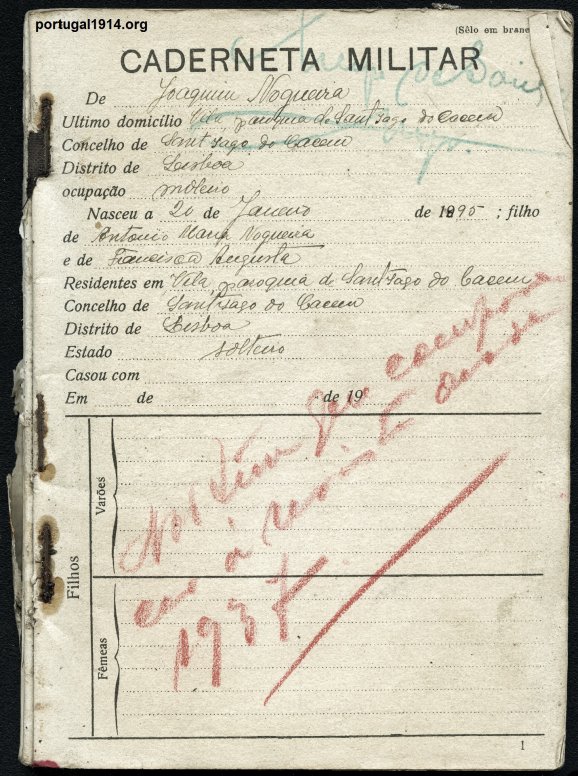 portugal1914.org
(Sêlo em branc
CADERNETA MILITAR
De Joaquim Nogueira
Ultimo domicilio Vila paroquia de Sant'Iago do Cacem
Concelho de Sant'Iago do Cacem
Distrito de Lisboa
ocupação moleiro
Nasceu a 20 de Janeiro de 1895 ; filho
de Antonio Maria Nogueira
e de Francisca Augusta
Residentes em Vila paroquia de Sant'Iago do Cacem
Concelho de Sant'Iago do Cacem
Distrito de Lisboa
Estado solteiro
Casou com
Em de de 19
Filhos
Varões
Fêmeas
á revista
1937
1